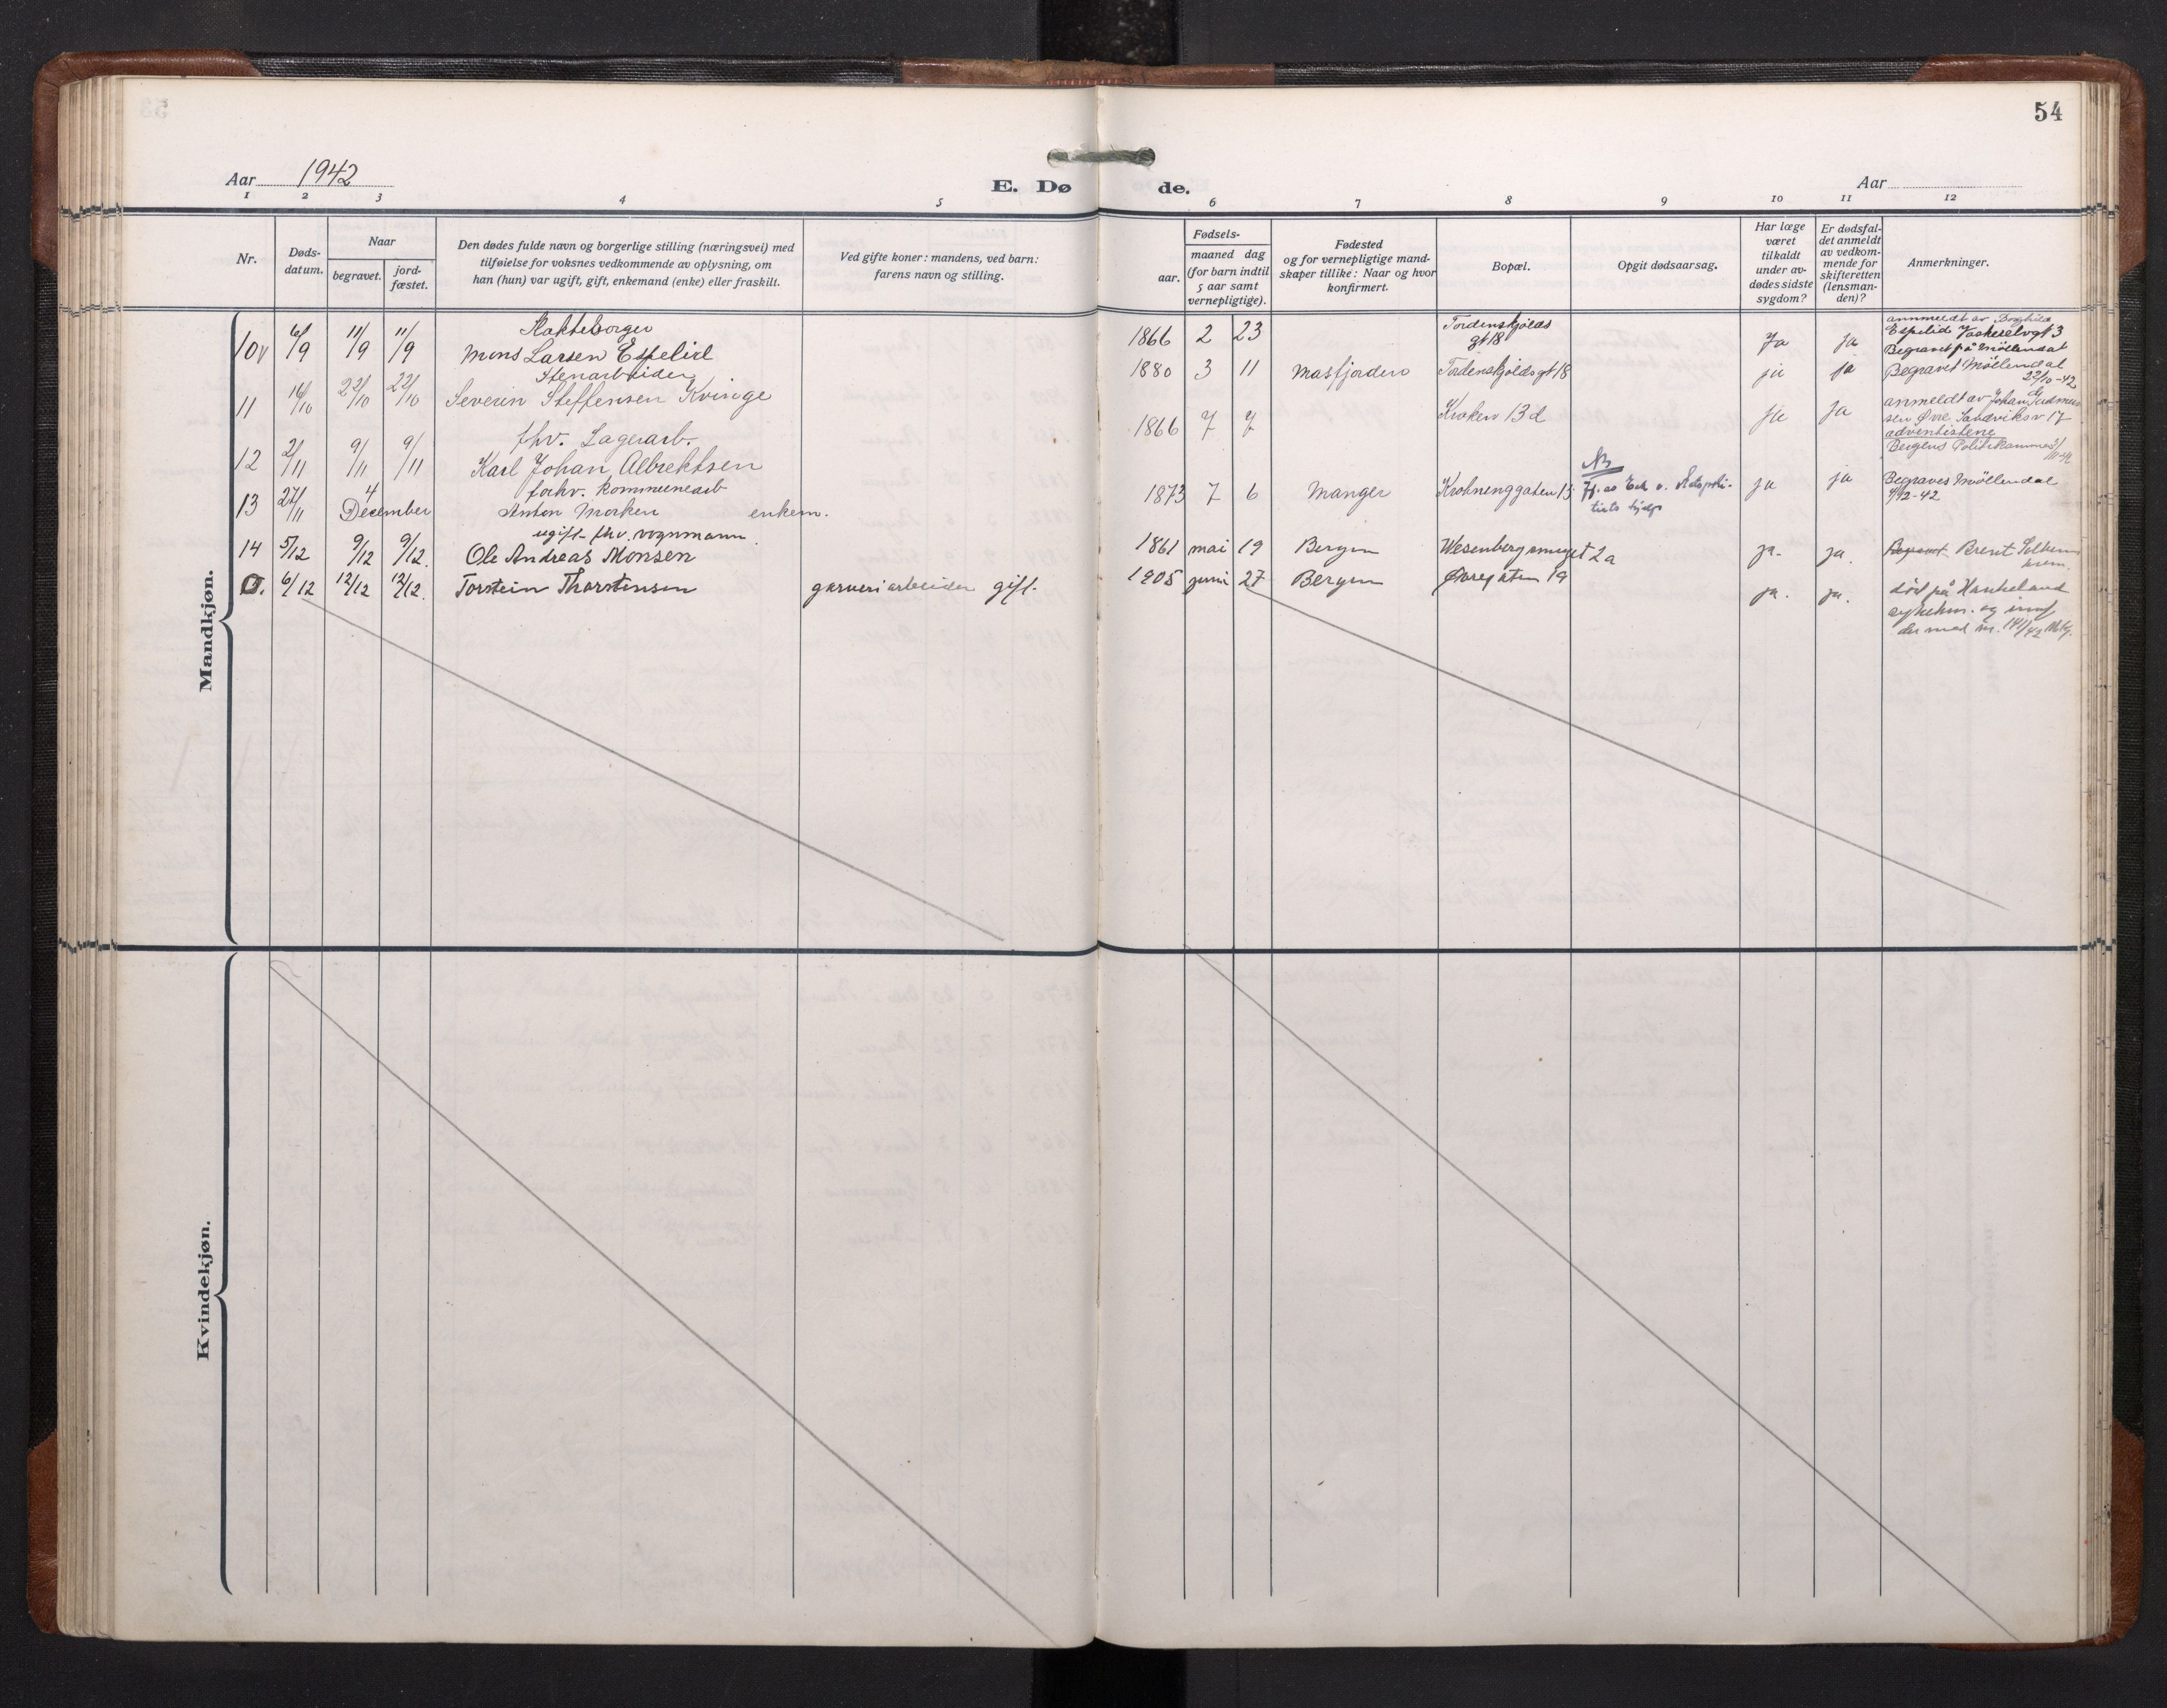 54
Aar 1942
E. Dø de.
Aar
1 2 3 4 5 6 7 8 9 10 11 12
Nr.
Døds-
datum.
Naar
begravet.
jord-
fæstet.
Den dødes fulde navn og borgerlige stilling (næringsvei) med
tilføielse for voksnes vedkommende av oplysning, om
han (hun) var ugift, gift, enkemand (enke) eller fraskilt.
Ved gifte koner: mandens, ved barn:
farens navn og stilling.
Fødsels-
aar.
maaned dag
(for barn indtil
5 aar samt
vernepligtige).
Fødested
og for vernepligtige mand-
skaper tillike: Naar og hvor
konfirmert.
Bopæl.
Opgit dødsaarsag.
Har læge
været
tilkaldt
under av-
dødes sidste
sygdom?
Er dødsfal-
det anmeldt
av vedkom-
mende for
skifteretten
(lensman-
den)?
Anmerkninger.
Mandkjøn.
Slakteborger
10v 6/9 11/9 11/9 Mons Larsen Espelid
1866 2 23
Tordenskjolds
gt 18
Ja ja
anmeldt av Borghild
Espelid
Begravet på Möllendal
Stenarbeider
11 16/10 22/10 22/10 Severin Steffensen Kvinge
1880 3 11 Masfjorden Tordenskjoldsgt 18 ja ja
Begravet Möllendal
22/10-42
fhv. Lagerarb.
12 2/11 9/11 9/11 Karl Johan Albrektsen
1866 7 7 Kroken 13d ja ja
anmeldt av Johan Gudmun
sen Øvre Sandviksv 17
adventistene
Bergens Politikammer
forhv. kommunearb
13 27/11 4 December Anton Morken enkem.
1873 7 6 Manger Krohnenggaten 13
NB
ja ja
Begraves Möllendal
4/12-42
ugift fhv. vognmann
14 5/12 9/12 9/12. Ole Andreas Monsen
1861 mai 19 Bergen Wesenbergsmuget 2a ja. ja.
Begravet Brent
krem.
0. 6/12 12/12 12/12. Torstein Thorstensen garveriarbeider gift.
1905 juni 27 Bergen Øvregaten 19 ja. ja.
død på Haukeland
sykehus. og innf.
der med nr. 141/42
Kvindekjøn.